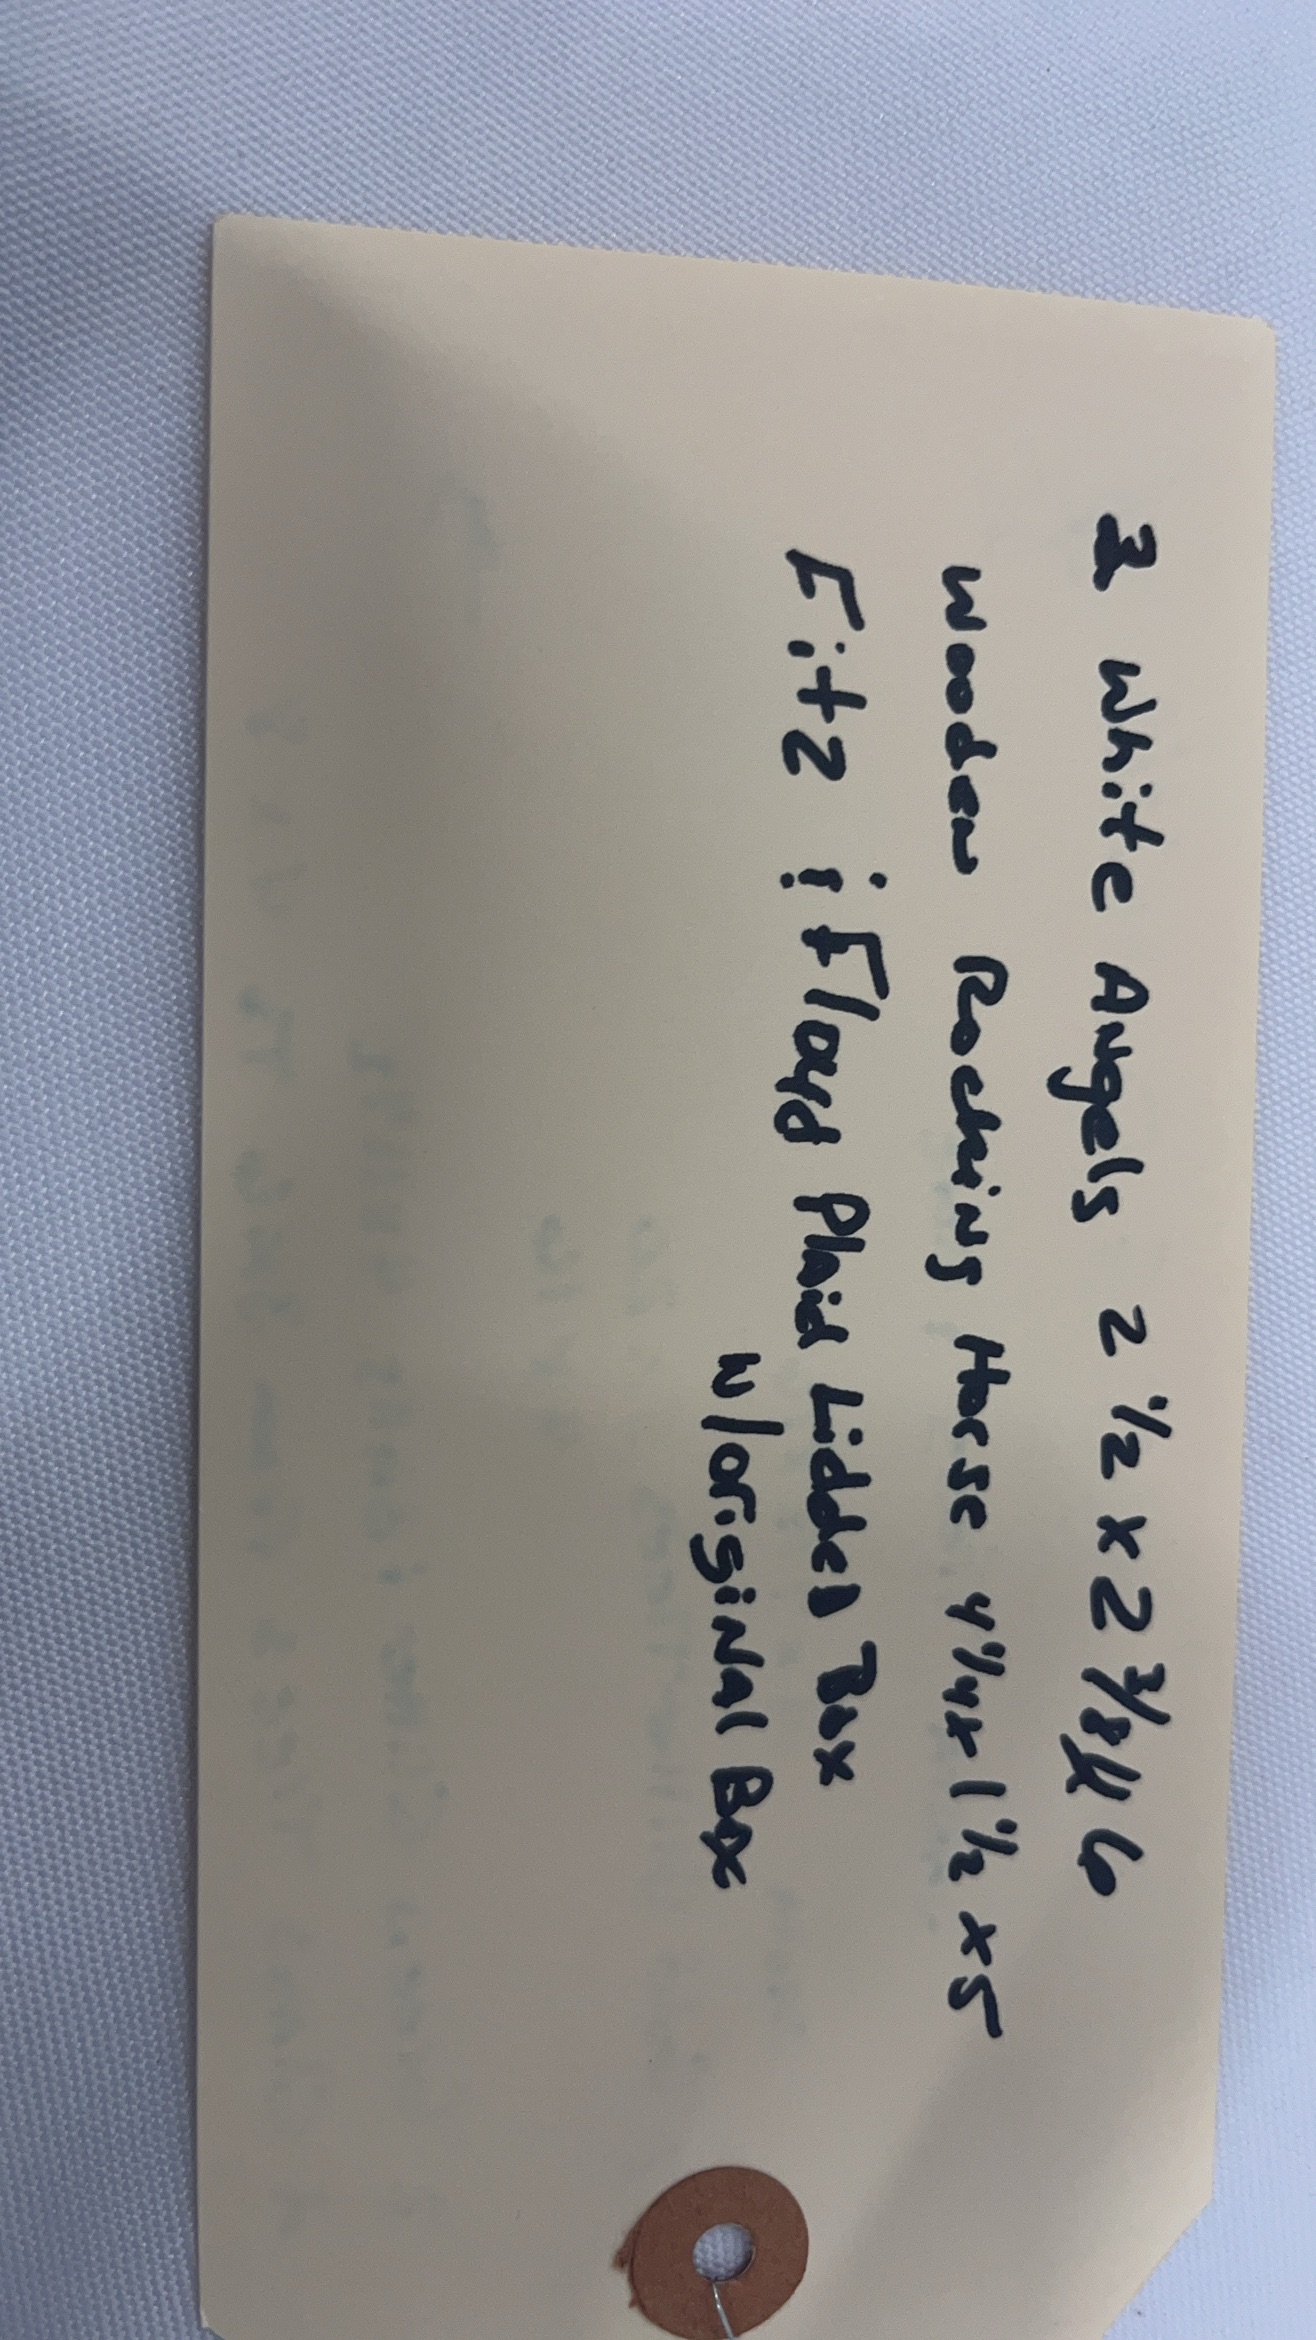 3 White Angels 2 1/2 x 2 3/8 x 6
Wooden Rocking Horse 4 1/4 x 1 1/2 x 5
Fitz & Floyd Plaid Lidded Box
w/original Box